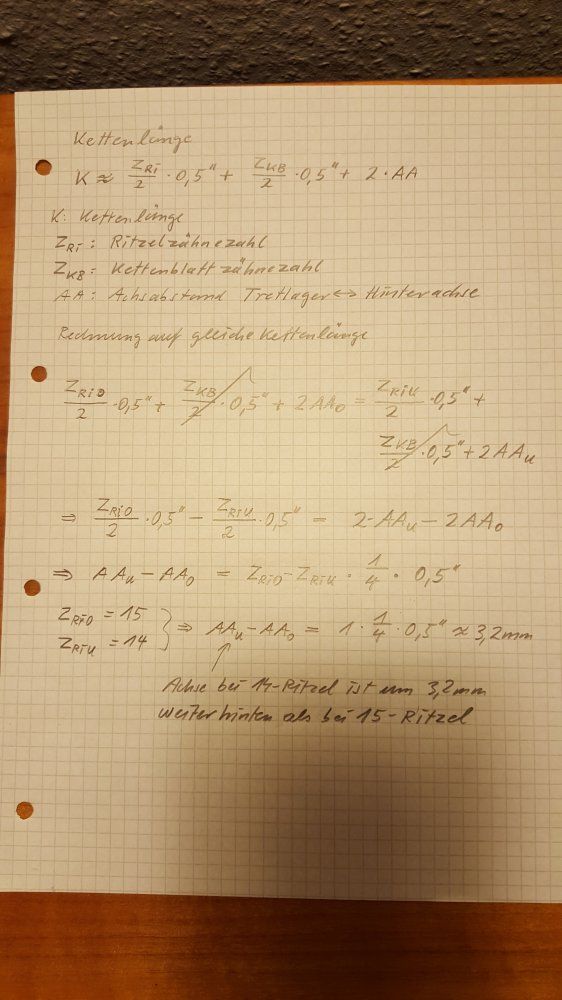 Kettenlänge
K ≈ Z_Ri/2 · 0,5" + Z_KB/2 · 0,5" + 2 · AA
K: Kettenlänge
Z_Ri: Ritzelzähnezahl
Z_KB: Kettenblattzähnezahl
AA: Achsabstand Tretlager ↔ Hinterachse
Rechnung auf gleiche Kettenlänge
Z_RiO/2 · 0,5" + Z_KB/2 · 0,5" + 2AA_o = Z_RiU/2 · 0,5" +
Z_KB/2 · 0,5" + 2AA_u
⇒ Z_RiO/2 · 0,5" - Z_RiU/2 · 0,5" = 2·AA_u - 2AA_o
⇒ AA_u - AA_o = Z_RiO - Z_RiU · 1/4 · 0,5"
Z_RiO = 15
Z_RiU = 14
⇒ AA_u - AA_o = 1 · 1/4 · 0,5" ≈ 3,2mm
Achse bei 14-Ritzel ist um 3,2mm
weiter hinten als bei 15-Ritzel